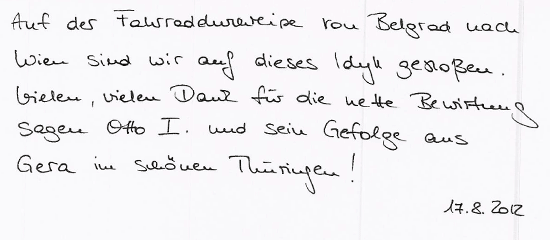 Auf der Fahrraddurchreise von Belgrad nach
Wien sind wir auf dieses Idyll gestoßen.
Vielen, vielen Dank für die nette Bewirtung
sagen Otto I. und sein Gefolge aus
Gera im schönen Thüringen!
17.8.2012